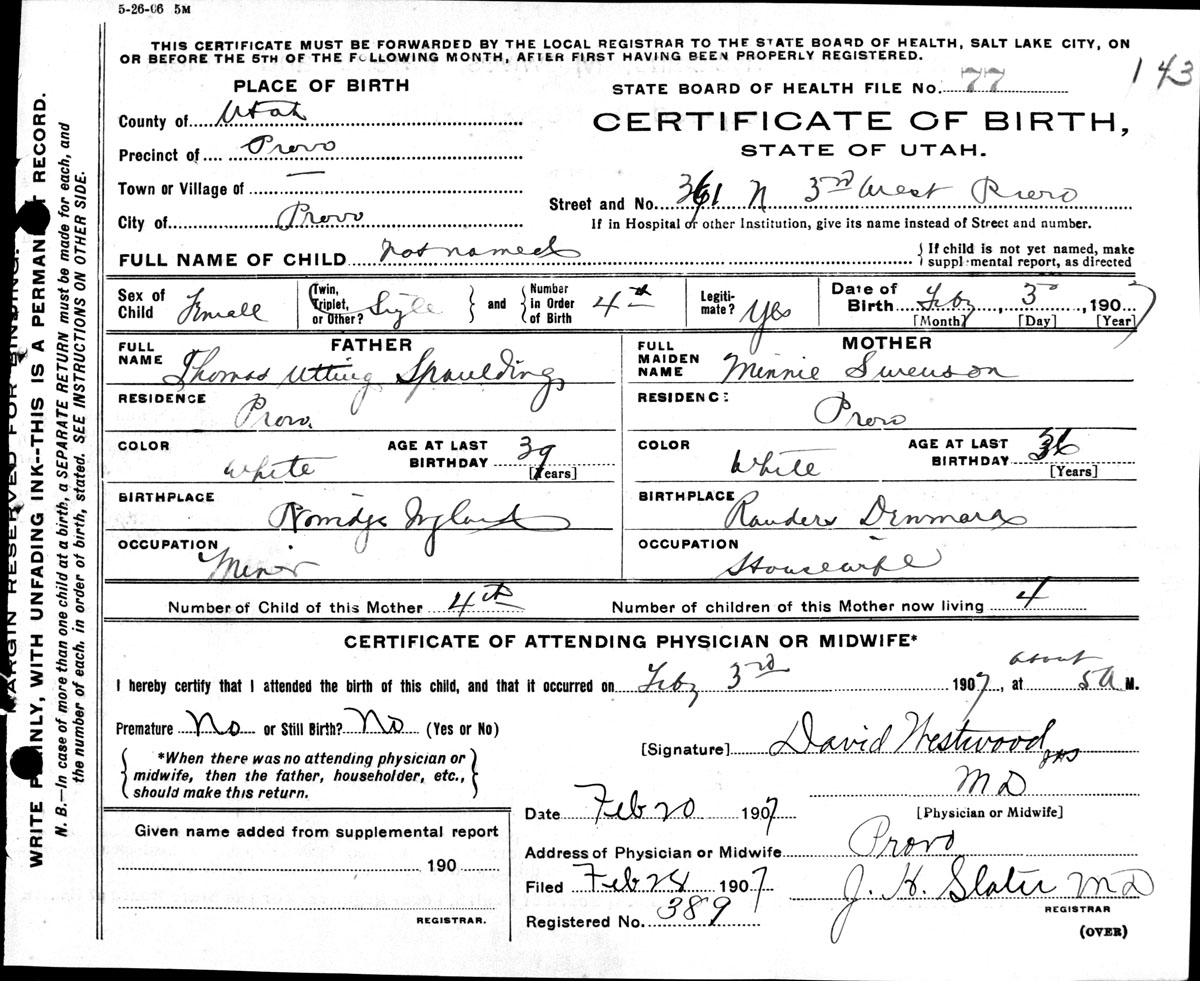 5-26-06 5M
THIS CERTIFICATE MUST BE FORWARDED BY THE LOCAL REGISTRAR TO THE STATE BOARD OF HEALTH, SALT LAKE CITY, ON
OR BEFORE THE 5TH OF THE FOLLOWING MONTH, AFTER FIRST HAVING BEEN PROPERLY REGISTERED.
143
PLACE OF BIRTH
STATE BOARD OF HEALTH FILE No. 77
County of Utah
CERTIFICATE OF BIRTH,
STATE OF UTAH.
Precinct of Provo
Town or Village of —
Street and No. 361 N 3rd West Provo
City of Provo
If in Hospital or other Institution, give its name instead of Street and number.
FULL NAME OF CHILD not named
{ If child is not yet named, make
suppl mental report, as directed
Sex of Child Female
{ Twin, Triplet, or Other? Sigle } and { Number in Order of Birth 4th
Legiti-mate? Yes
Date of Birth Feby 3d, 1907
[Month] [Day] [Year]
FATHER
FULL NAME Thomas Utting Spaulding
RESIDENCE Provo.
COLOR White
AGE AT LAST BIRTHDAY 39
[Years]
BIRTHPLACE Norridge England
OCCUPATION Miner
MOTHER
FULL MAIDEN NAME Minnie Swenson
RESIDENCE Provo
COLOR White
AGE AT LAST BIRTHDAY 36
[Years]
BIRTHPLACE Randers Denmark
OCCUPATION Housewife
Number of Child of this Mother 4th
Number of children of this Mother now living 4
CERTIFICATE OF ATTENDING PHYSICIAN OR MIDWIFE*
I hereby certify that I attended the birth of this child, and that it occurred on Feby 3rd 1907, at about 5 A M.
Premature No or Still Birth? No (Yes or No)
{ *When there was no attending physician or
midwife, then the father, householder, etc.,
should make this return. }
[Signature] David Westwood
M D
[Physician or Midwife]
Date Feb 20 1907
Given name added from supplemental report
190
REGISTRAR.
Address of Physician or Midwife Provo
Filed Feb 28 1907
J. H. Slater M D
REGISTRAR
Registered No. 389
(OVER)
MARGIN RESERVED FOR BINDING.
WRITE P INLY, WITH UNFADING INK--THIS IS A PERMAN T RECORD.
N. B.—In case of more than one child at a birth, a SEPARATE RETURN must be made for each, and
the number of each, in order of birth, stated. SEE INSTRUCTIONS ON OTHER SIDE.